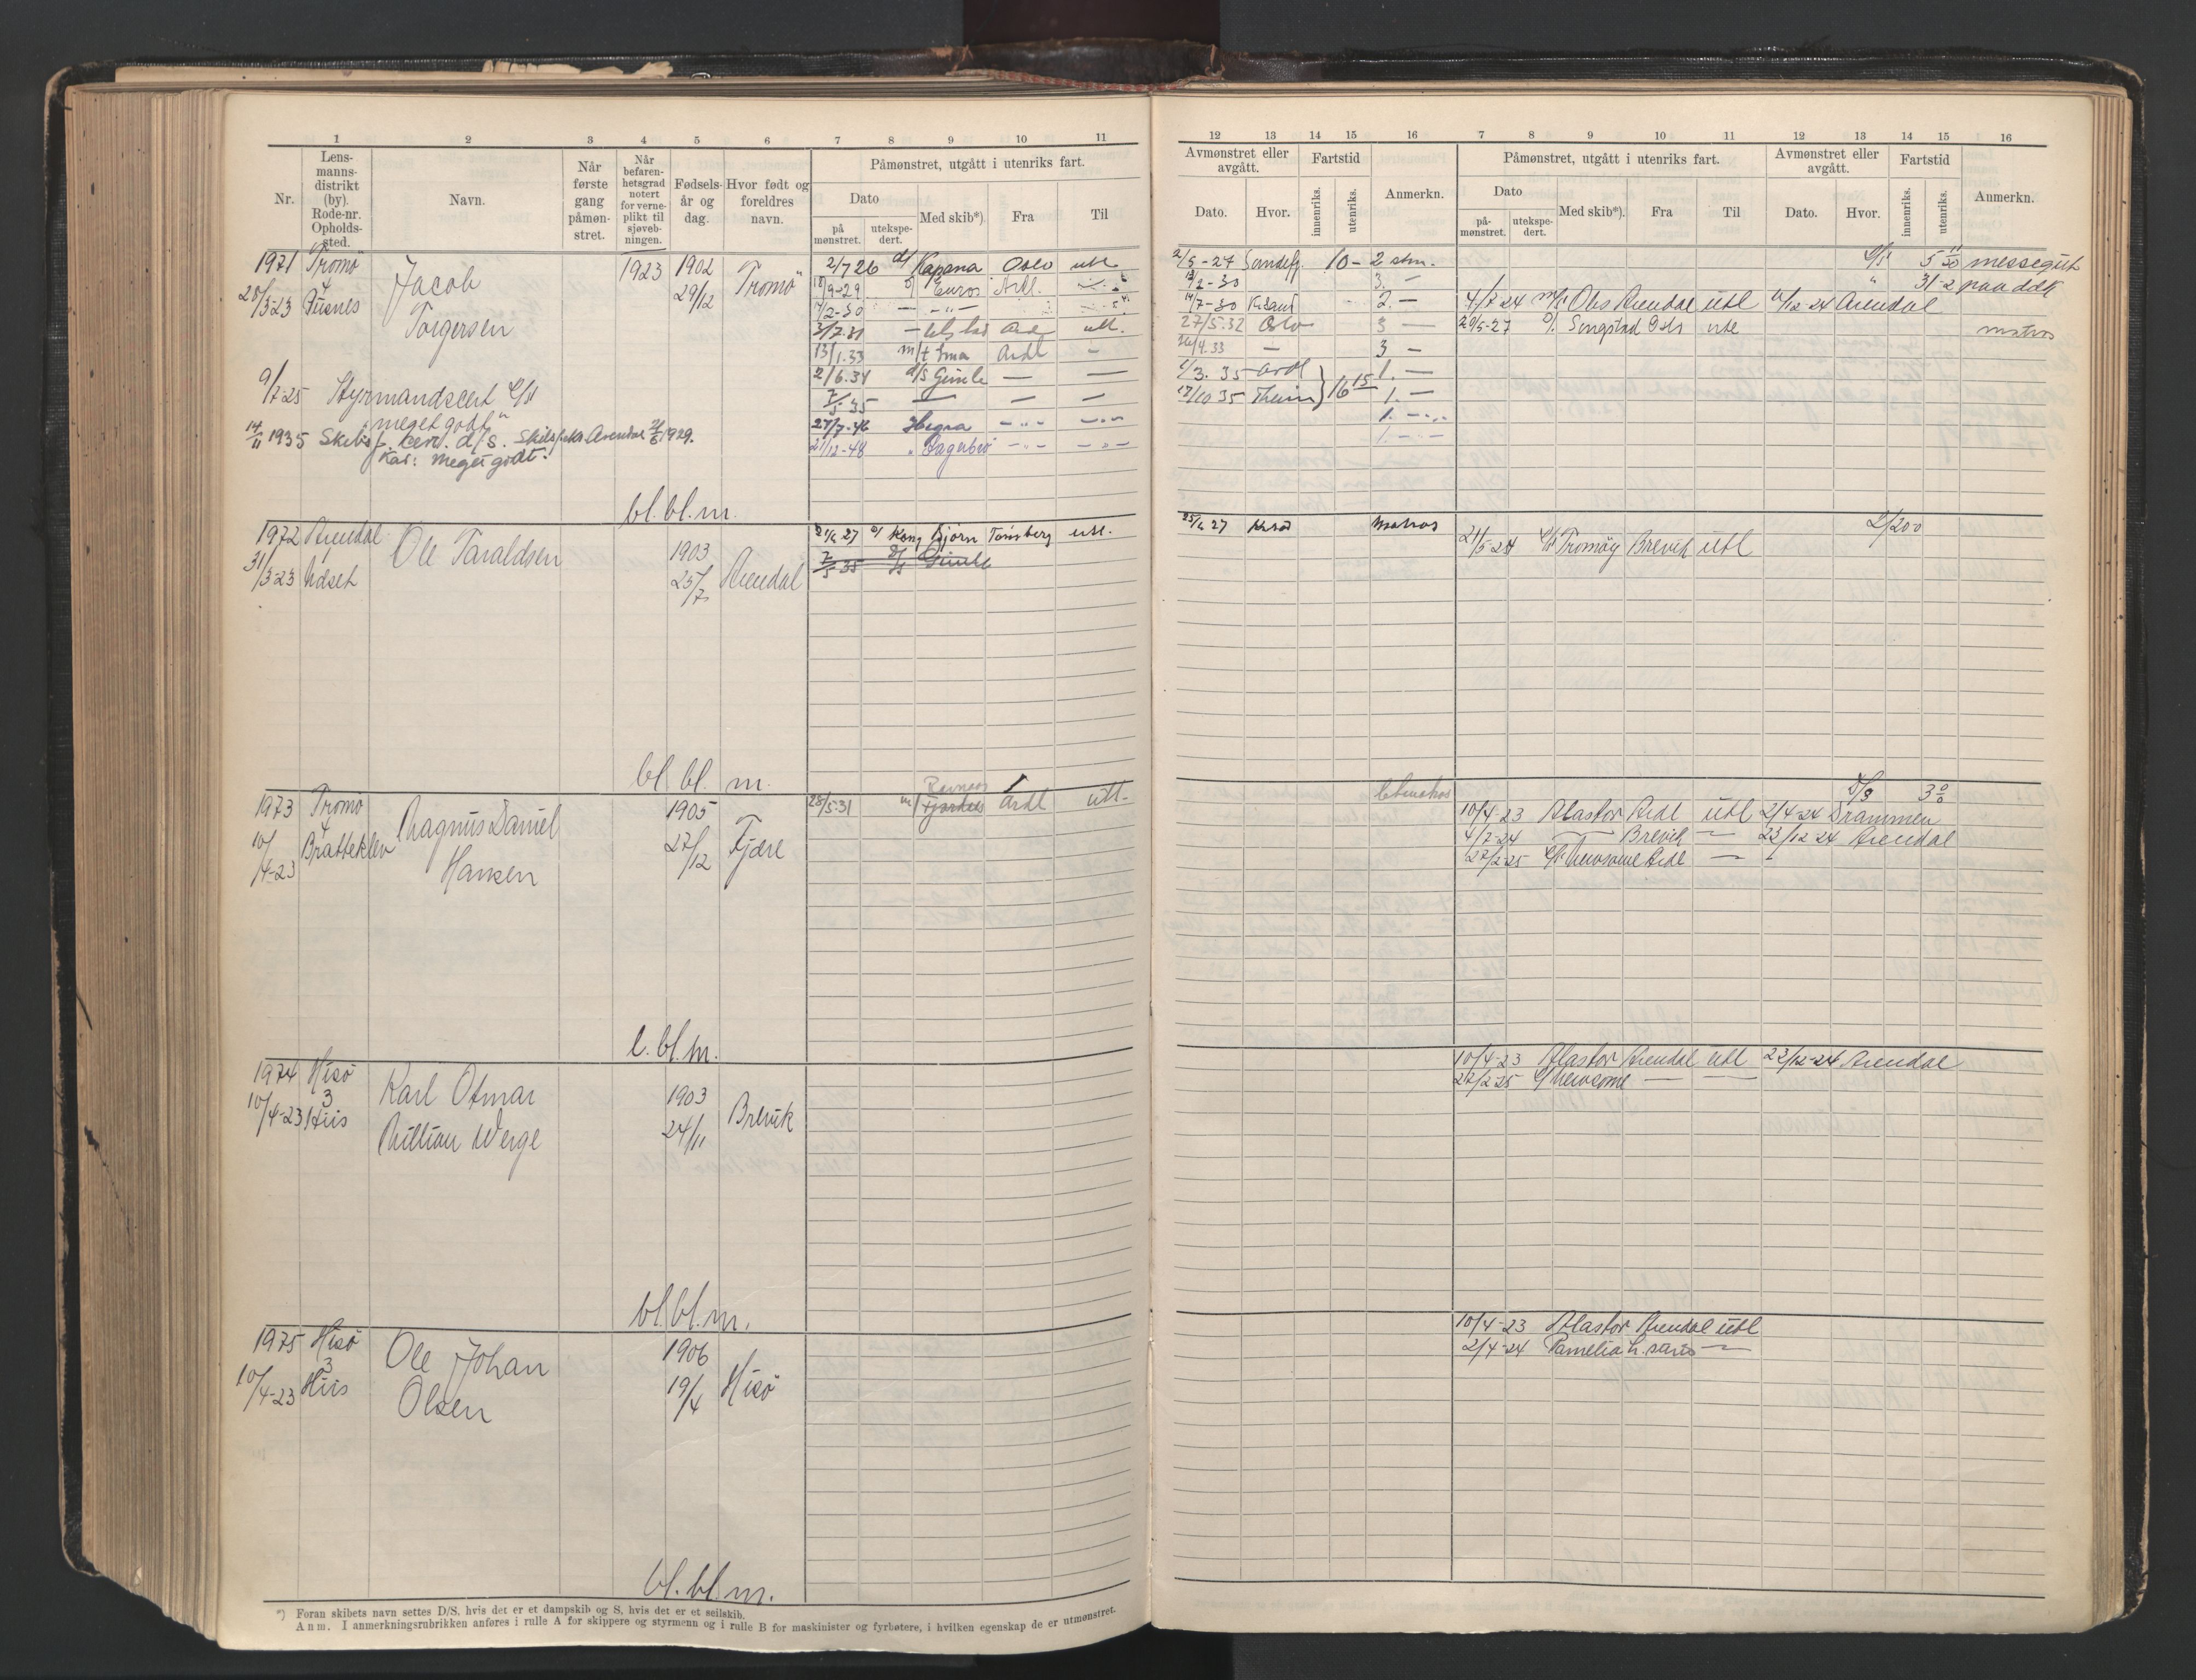 1 2 3 4 5 6 7 8 9 10 11
Nr.
Lens-
manns-
distrikt
(by).
Rode-nr.
Opholds-
sted.
Navn.
Når
første
gang
påmøn-
stret.
Når
befaren-
hetsgrad
notert
for verne-
plikt til
sjøveb-
ningen.
Fødsels-
år og
dag.
Hvor født og
foreldres
navn.
Påmønstret, utgått i utenriks fart.
Dato
på
mønstret.
utekspe-
dert.
Med skib*).
Fra
Til
1971 Tromø
4
20/3-23 Pusnes
Jacob
Torgersen
1923
1902
29/12
Tromö
2/7 26 d/ Kapana Oslo utl
18/9-29 Euros Ardl.
14/2-30
3/7.31 Ard utl.
13/1.33 m/t Ima Ardl -
2/6.34 d/s Gimle — —
7/5 35 — — —
27/7-46 Hegra
21/12-48
9/7-25 Styrmandscert
"meget godt"
14/11 1935 Skibsf. cert. d/s. Arendal 1929.
Kar: meget godt.
bl. bl. m.
1972 Arendal
31/3-23
Ole Taraldsen
1903
25/7
Arendal
27 Kong Bjørn Tønsberg utl.
7/5 35 d/s Gimle
bl. bl. m.
1973 Tromø
4
10/4-23 Bratteklev
Magnus Daniel
Hansen
1905
27/12
Fjære
28/5.31 m/ Ravnaas Ardl utl-
l. bl. m.
1974 Hisø
3
10/4-23 His
Karl Otmar
Millian Werge
1903
24/11
Brevik
bl. bl. m.
1975 Hisø
3
10/4-23 His
Ole Johan
Olsen
1906
19/4
Hisö
bl. bl. m.
*) Foran skibets navn settes D/S, hvis det er et dampskib og S, hvis det er et seilskib.
Anm. I anmerkningsrubrikken anføres i rulle A for skippere og styrmenn og i rulle B for maskinister og fyrbøtere, i hvilken egenskap de er utmønstret.
12 13 14 15 16 7 8 9 10 11 12 13 14 15 16
Avmønstret eller
avgått.
Dato. Hvor.
Fartstid
innenriks.
utenriks.
Anmerkn.
Påmønstret, utgått i utenriks fart.
Dato
på-
mønstret.
utekspe-
dert.
Med skib*).
Fra
Til
Avmønstret eller
avgått.
Dato. Hvor.
Fartstid
innenriks.
utenriks.
Anmerkn.
2/5-27 Sandefj. 10- 2 stm.
2-30 3. -
14/7-30 K.Sand 2. -
27/5.32 Oslo 3 -
26/4.33 - 3 -
1/3.35 Ardl 1. -
17/10 35 Thjem 16 15 1. -
1.
1.
messegut
31-2 paa ddk
4/7 24 m/s Obs Arendal utl 12 24 Arendal
20/5-27 Songstad Oslo utl matros
27 Krsd matros
21/5-24 Tromøy Brevik utl
letmatros
3
10/4-23 Alastor Ardl utl 2/4-24 Drammen
4/7-24 — Brevik — 23/12 24 Arendal
27/2-25 Newsome Ardl —
10/4-23 Alastor Arendal utl 23/12-24 Arendal
27/2 25 Newsome — —
10/4-23 Alastor Arendal utl
2/4-24 Pamelia —